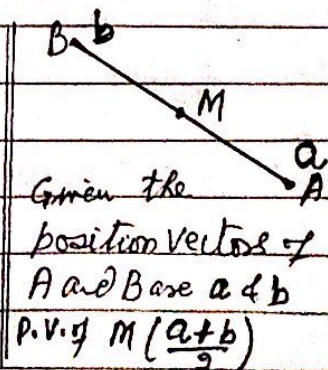 B b
M
a
A
Given the
position vectors of
A and B are a & b
P.V. of M (a+b/2)